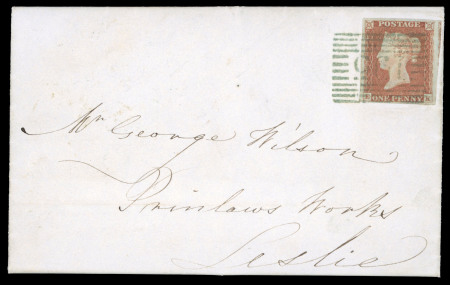 POSTAGE
ONE PENNY
Mr George Wilson
Prinlaws Works
Leslie